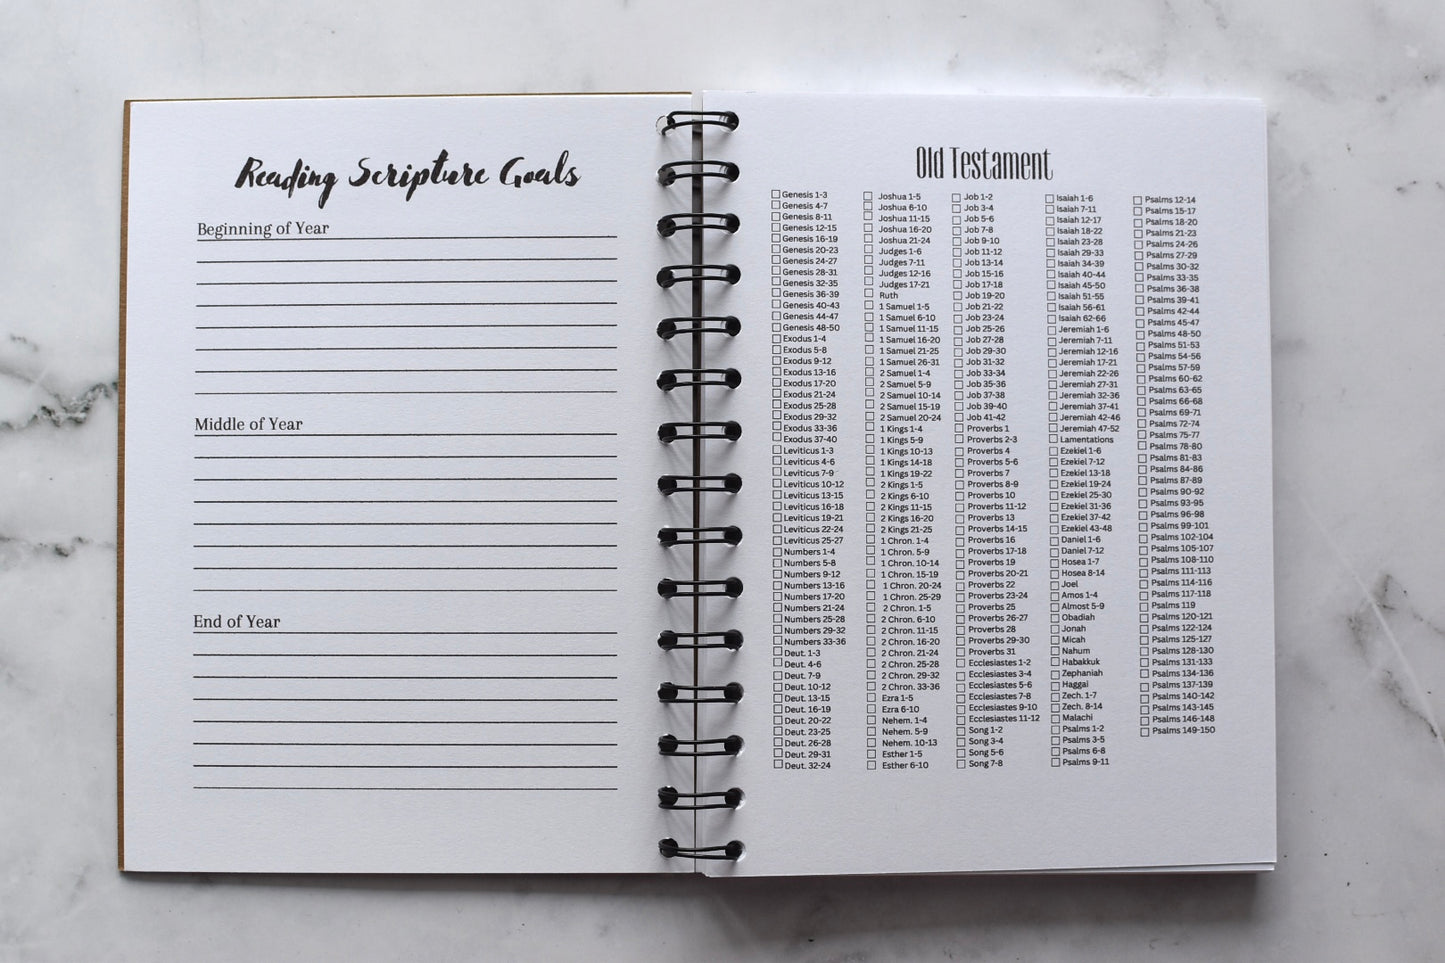 Reading Scripture Goals
Beginning of Year
Middle of Year
End of Year
Old Testament
Genesis 1-3
Genesis 4-7
Genesis 8-11
Genesis 12-15
Genesis 16-19
Genesis 20-23
Genesis 24-27
Genesis 28-31
Genesis 32-35
Genesis 36-39
Genesis 40-43
Genesis 44-47
Genesis 48-50
Exodus 1-4
Exodus 5-8
Exodus 9-12
Exodus 13-16
Exodus 17-20
Exodus 21-24
Exodus 25-28
Exodus 29-32
Exodus 33-36
Exodus 37-40
Leviticus 1-3
Leviticus 4-6
Leviticus 7-9
Leviticus 10-12
Leviticus 13-15
Leviticus 16-18
Leviticus 19-21
Leviticus 22-24
Leviticus 25-27
Numbers 1-4
Numbers 5-8
Numbers 9-12
Numbers 13-16
Numbers 17-20
Numbers 21-24
Numbers 25-28
Numbers 29-32
Numbers 33-36
Deut. 1-3
Deut. 4-6
Deut. 7-9
Deut. 10-12
Deut. 13-15
Deut. 16-19
Deut. 20-22
Deut. 23-25
Deut. 26-28
Deut. 29-31
Deut. 32-24
Joshua 1-5
Joshua 6-10
Joshua 11-15
Joshua 16-20
Joshua 21-24
Judges 1-6
Judges 7-11
Judges 12-16
Judges 17-21
Ruth
1 Samuel 1-5
1 Samuel 6-10
1 Samuel 11-15
1 Samuel 16-20
1 Samuel 21-25
1 Samuel 26-31
2 Samuel 1-4
2 Samuel 5-9
2 Samuel 10-14
2 Samuel 15-19
2 Samuel 20-24
1 Kings 1-4
1 Kings 5-9
1 Kings 10-13
1 Kings 14-18
1 Kings 19-22
2 Kings 1-5
2 Kings 6-10
2 Kings 11-15
2 Kings 16-20
2 Kings 21-25
1 Chron. 1-4
1 Chron. 5-9
1 Chron. 10-14
1 Chron. 15-19
1 Chron. 20-24
1 Chron. 25-29
2 Chron. 1-5
2 Chron. 6-10
2 Chron. 11-15
2 Chron. 16-20
2 Chron. 21-24
2 Chron. 25-28
2 Chron. 29-32
2 Chron. 33-36
Ezra 1-5
Ezra 6-10
Nehem. 1-4
Nehem. 5-9
Nehem. 10-13
Esther 1-5
Esther 6-10
Job 1-2
Job 3-4
Job 5-6
Job 7-8
Job 9-10
Job 11-12
Job 13-14
Job 15-16
Job 17-18
Job 19-20
Job 21-22
Job 23-24
Job 25-26
Job 27-28
Job 29-30
Job 31-32
Job 33-34
Job 35-36
Job 37-38
Job 39-40
Job 41-42
Proverbs 1
Proverbs 2-3
Proverbs 4
Proverbs 5-6
Proverbs 7
Proverbs 8-9
Proverbs 10
Proverbs 11-12
Proverbs 13
Proverbs 14-15
Proverbs 16
Proverbs 17-18
Proverbs 19
Proverbs 20-21
Proverbs 22
Proverbs 23-24
Proverbs 25
Proverbs 26-27
Proverbs 28
Proverbs 29-30
Proverbs 31
Ecclesiastes 1-2
Ecclesiastes 3-4
Ecclesiastes 5-6
Ecclesiastes 7-8
Ecclesiastes 9-10
Ecclesiastes 11-12
Song 1-2
Song 3-4
Song 5-6
Song 7-8
Isaiah 1-6
Isaiah 7-11
Isaiah 12-17
Isaiah 18-22
Isaiah 23-28
Isaiah 29-33
Isaiah 34-39
Isaiah 40-44
Isaiah 45-50
Isaiah 51-55
Isaiah 56-61
Isaiah 62-66
Jeremiah 1-6
Jeremiah 7-11
Jeremiah 12-16
Jeremiah 17-21
Jeremiah 22-26
Jeremiah 27-31
Jeremiah 32-36
Jeremiah 37-41
Jeremiah 42-46
Jeremiah 47-52
Lamentations
Ezekiel 1-6
Ezekiel 7-12
Ezekiel 13-18
Ezekiel 19-24
Ezekiel 25-30
Ezekiel 31-36
Ezekiel 37-42
Ezekiel 43-48
Daniel 1-6
Daniel 7-12
Hosea 1-7
Hosea 8-14
Joel
Amos 1-4
Almost 5-9
Obadiah
Jonah
Micah
Nahum
Habakkuk
Zephaniah
Haggai
Zech. 1-7
Zech. 8-14
Malachi
Psalms 1-2
Psalms 3-5
Psalms 6-8
Psalms 9-11
Psalms 12-14
Psalms 15-17
Psalms 18-20
Psalms 21-23
Psalms 24-26
Psalms 27-29
Psalms 30-32
Psalms 33-35
Psalms 36-38
Psalms 39-41
Psalms 42-44
Psalms 45-47
Psalms 48-50
Psalms 51-53
Psalms 54-56
Psalms 57-59
Psalms 60-62
Psalms 63-65
Psalms 66-68
Psalms 69-71
Psalms 72-74
Psalms 75-77
Psalms 78-80
Psalms 81-83
Psalms 84-86
Psalms 87-89
Psalms 90-92
Psalms 93-95
Psalms 96-98
Psalms 99-101
Psalms 102-104
Psalms 105-107
Psalms 108-110
Psalms 111-113
Psalms 114-116
Psalms 117-118
Psalms 119
Psalms 120-121
Psalms 122-124
Psalms 125-127
Psalms 128-130
Psalms 131-133
Psalms 134-136
Psalms 137-139
Psalms 140-142
Psalms 143-145
Psalms 146-148
Psalms 149-150